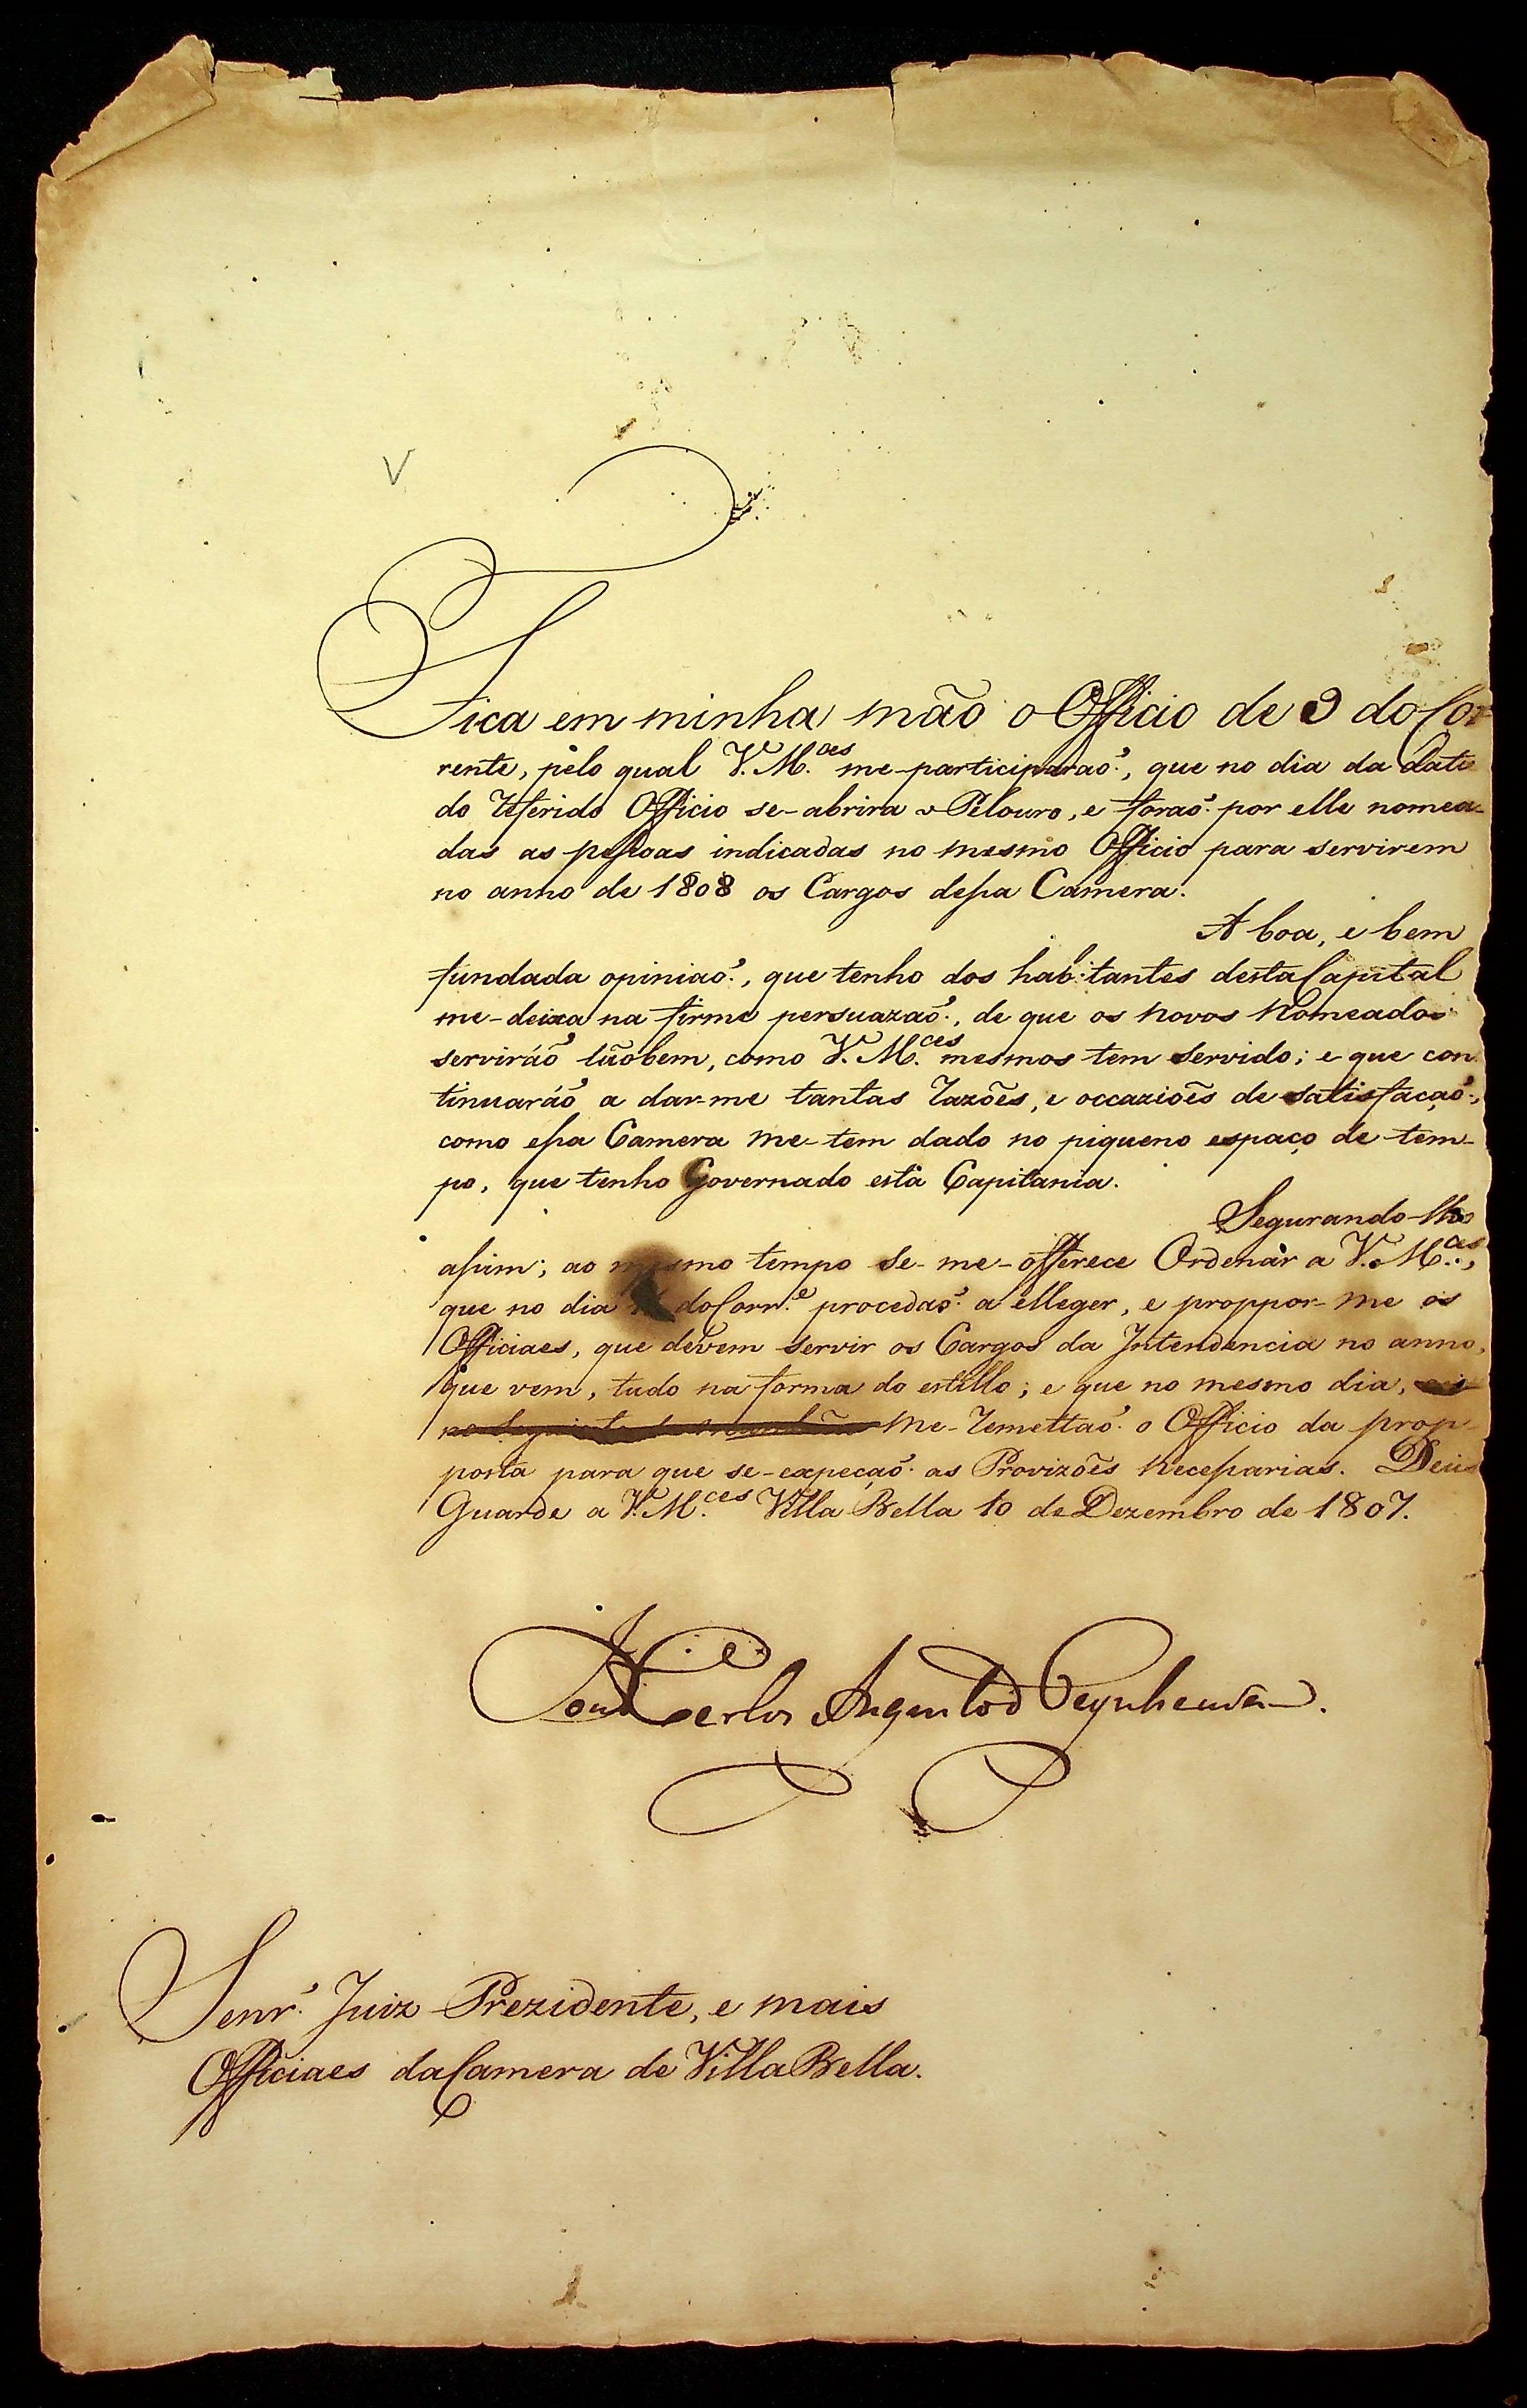 V
Fica em minha mão o Officio de 9 do Cor
rente, pelo qual V. M.ces me-participaraõ, que no dia da data
do referido Officio se-abrira o Pelouro, e foraõ por elle nomea-
das as pessoas indicadas no mesmo Officio para servirem
no anno de 1808 os Cargos dessa Camera.
A boa, e bem
fundada opiniaõ, que tenho dos habitantes desta Capital
me-deixa na firme persuazaõ, de que os novos Nomeados
serviráõ taõbem, como V. M.ces mesmos tem servido; e que con
tinuaráõ a dar-me tantas razões, e occaziões de satisfaçaõ,
como essa Camera me-tem dado no piqueno espaço de tem-
po, que tenho Governado esta Capitania.
Segurando-lho
assim; ao mesmo tempo se-me-offerece Ordenar a V. M.ces,
que no dia do Corr.e procedaõ a elleger, e proppor-me os
Officiaes, que devem servir os Cargos da Intendencia no anno,
que vem, tudo na forma do estillo; e que no mesmo dia,
me-remettaõ o Officio da prop-
posta para que se-expeçaõ as Provizões necessarias. Deus
Guarde a V. M.ces Villa Bella 10 de Dezembro de 1807.
Joaõ Carlos Augusto d'Oeynhausen.
Senr. Juiz Prezidente, e mais
Officiaes da Camera de Villa Bella.